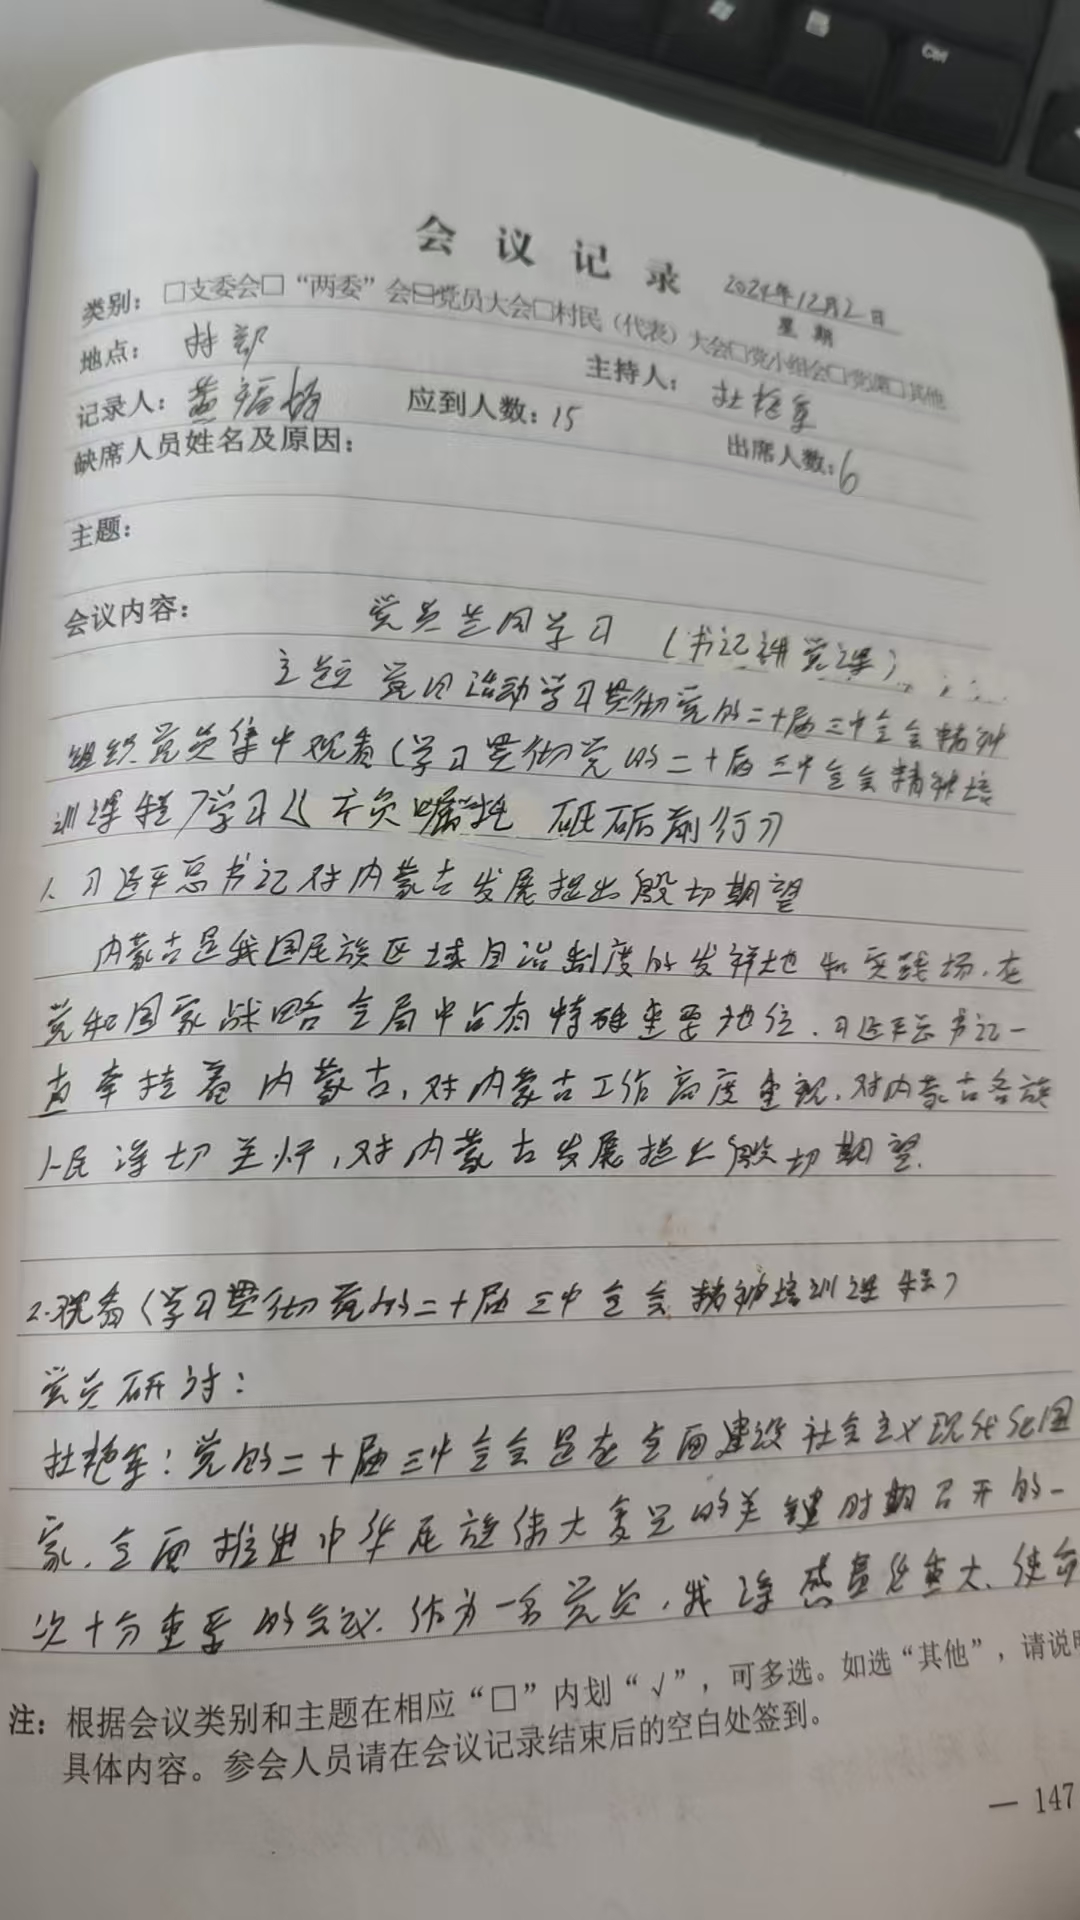 会议记录
2024年12月2日
星期
类别：□支委会□“两委”会□党员大会□村民（代表）大会□党小组会□党课□其他
地点：村部
主持人：杜艳军
记录人：黄福
应到人数：15
出席人数：6
缺席人员姓名及原因：
主题：
会议内容：
党员共同学习（书记讲党课）
主题党日活动学习贯彻党的二十届三中全会精神
组织党员集中观看（学习贯彻党的二十届三中全会精神培
训课程）学习《不负嘱托 砥砺前行》
1、习近平总书记对内蒙古发展提出殷切期望
内蒙古是我国民族区域自治制度的发祥地和实践场，在
党和国家战略全局中占有特殊重要地位，习近平总书记一
直牵挂着内蒙古，对内蒙古工作高度重视，对内蒙古各族
人民深切关怀，对内蒙古发展提出殷切期望.
2.观看（学习贯彻党的二十届三中全会精神培训课程）
党员研讨：
杜艳军：党的二十届三中全会是在全面建设社会主义现代化国
家、全面推进中华民族伟大复兴的关键时期召开的一
次十分重要的会议.作为一名党员，我深感责任重大、使命
注：根据会议类别和主题在相应“□”内划“√”，可多选。如选“其他”，请说明
具体内容。参会人员请在会议记录结束后的空白处签到。
— 147